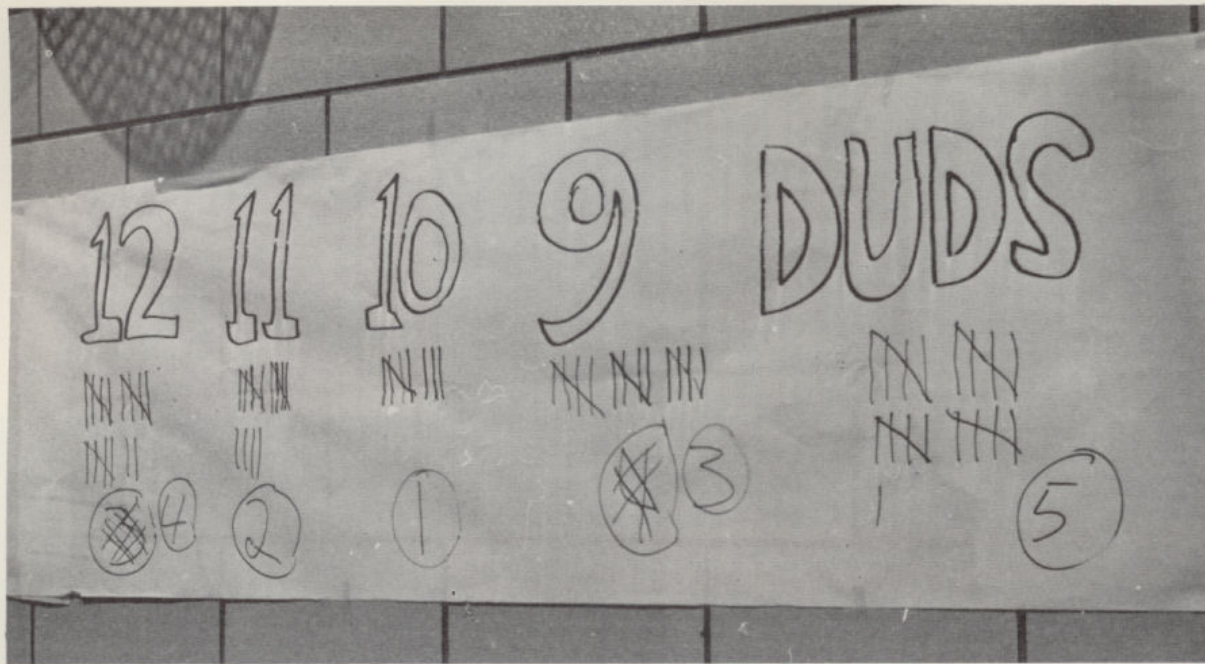 12 11 10 9 DUDS
4 2 1 3 5